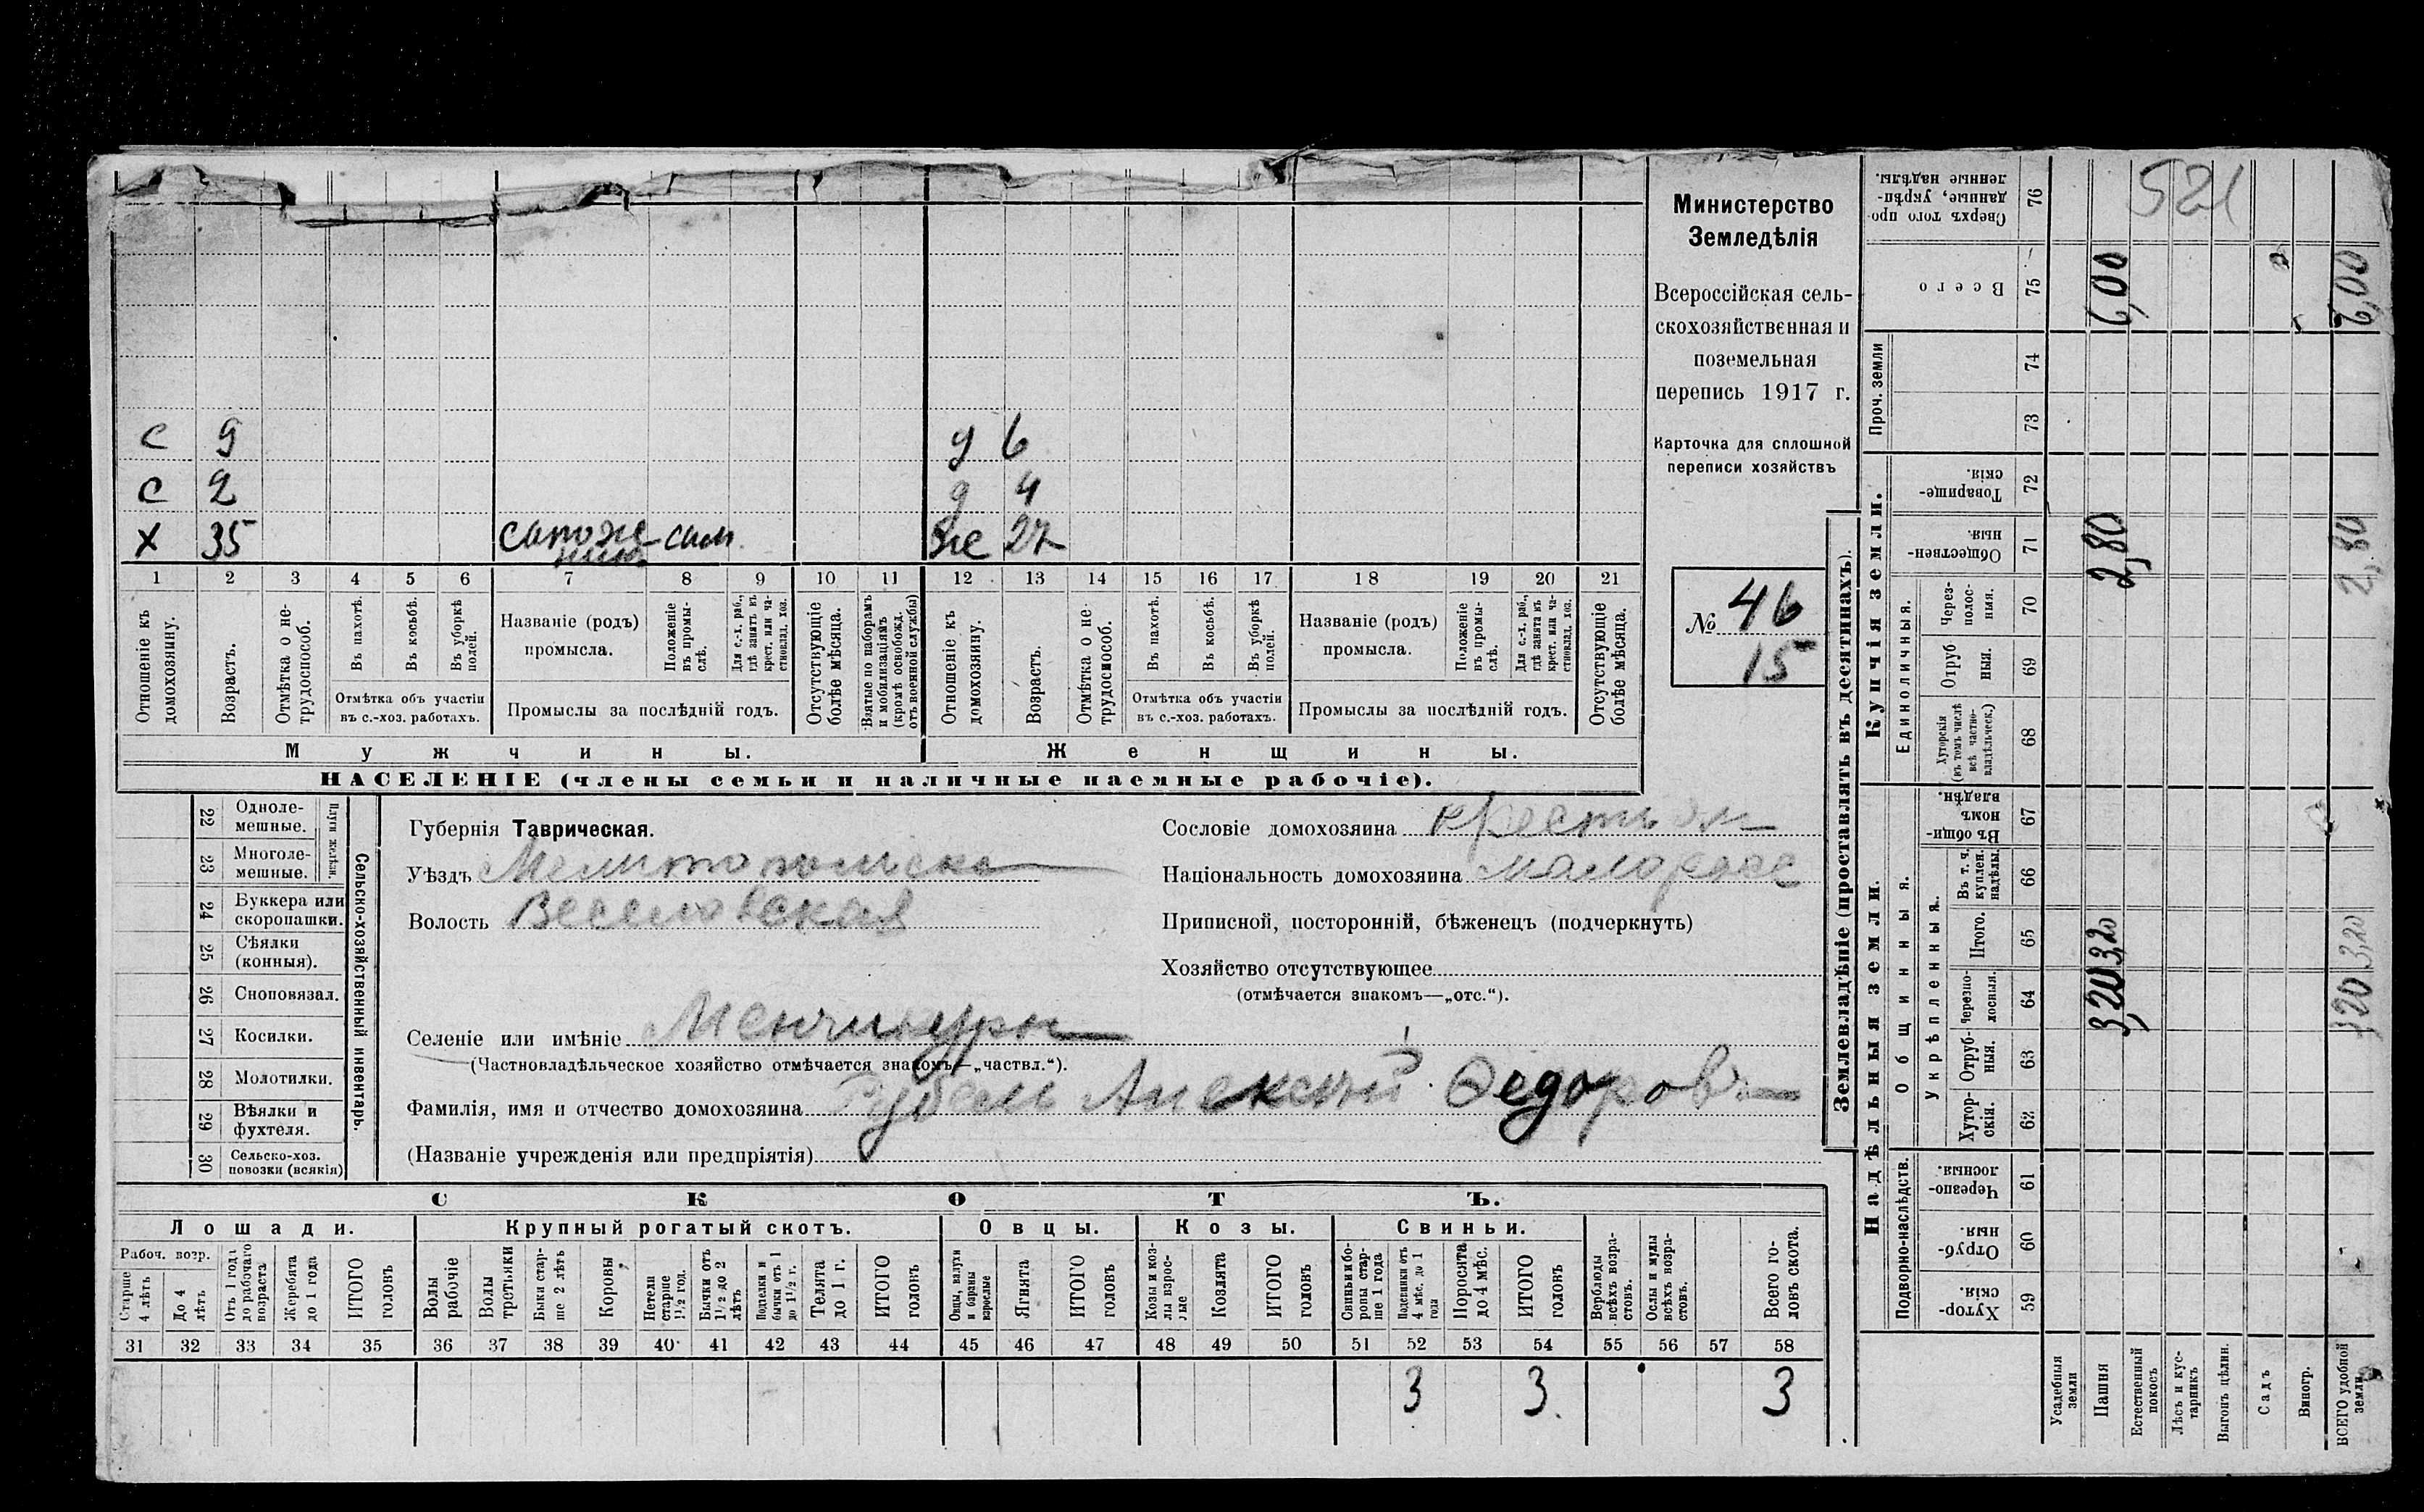 521
Министерство
Земледѣлія
Всероссійская сель-
скохозяйственная и
поземельная
перепись 1917 г.
Карточка для сплошной
переписи хозяйствъ
№ 46
15
с 9
д 6
с 2
д 4
х 35 сапож- сам
ник
же 27
1 2 3 4 5 6 7 8 9 10 11 12 13 14 15 16 17 18 19 20 21
Отношеніе къ домохозяину.
Возрастъ.
Отмѣтка о не-трудоспособ.
Въ пахотѣ.
Въ косьбѣ.
Въ уборкѣ полей.
Отмѣтка объ участіи
въ с.-хоз. работахъ.
Названіе (родъ)
промысла.
Положеніе въ промы-слѣ.
Для с.-х. раб., гдѣ занятъ въ крест. или ча-стновлад. хоз.
Промыслы за послѣдній годъ.
Отсутствующіе болѣе мѣсяца.
Взятые по наборамъ и мобилизаціямъ (кромѣ освобожд. отъ военной службы)
Отношеніе къ домохозяину.
Возрастъ.
Отмѣтка о не-трудоспособ.
Въ пахотѣ.
Въ косьбѣ.
Въ уборкѣ полей.
Отмѣтка объ участіи
въ с.-хоз. работахъ.
Названіе (родъ)
промысла.
Положеніе въ промы-слѣ.
Для с.-х. раб., гдѣ занята въ крест. или ча-стновлад. хоз.
Промыслы за послѣдній годъ.
Отсутствующіе болѣе мѣсяца.
Мужчины.
Женщины.
НАСЕЛЕНІЕ (члены семьи и наличные наемные рабочіе).
Сельско-хозяйственный инвентарь.
Плуги желѣзн.
22 Одноле-мешные.
23 Многоле-мешные.
24 Буккера или скоропашки.
25 Сѣялки (конныя).
26 Сноповязал.
27 Косилки.
28 Молотилки.
29 Вѣялки и фухтеля.
30 Сельско-хоз. повозки (всякія)
Губернія Таврическая.
Уѣздъ Мелитопольска
Волость Веселовская
Сословіе домохозяина крестьян
Національность домохозяина малоросс
Приписной, посторонній, бѣженецъ (подчеркнуть)
Хозяйство отсутствующее
(отмѣчается знакомъ—„отс.“).
Селеніе или имѣніе Менчикуры
(Частновладѣльческое хозяйство отмѣчается знакомъ—„частвл.“).
Фамилія, имя и отчество домохозяина Губель Алексѣй Ѳедоров
(Названіе учрежденія или предпріятія)
СКОТЪ.
Лошади.
Крупный рогатый скотъ.
Овцы.
Козы.
Свиньи.
Рабоч. возр.
Старше 4 лѣтъ
До 4 лѣтъ
Отъ 1 года до рабочаго возраста
Жеребята до 1 года
ИТОГО головъ
Волы рабочіе
Волы третьяки
Быки стар-ше 2 лѣтъ
Коровы
Нетели старше 1½ год.
Бычки отъ 1½ до 2 лѣтъ
Подтелки и бычки отъ 1 до 1½ г.
Телята до 1 г.
ИТОГО головъ
Овцы, валухи и бараны взрослые
Ягнята
ИТОГО головъ
Козы и коз-лы взрос-лые
Козлята
ИТОГО головъ
Свиньи и бо-ровы стар-ше 1 года
Подсвинки отъ 4 мѣс. до 1 года
Поросята до 4 мѣс.
ИТОГО головъ
Верблюды всѣхъ возра-стовъ.
Ослы и мулы всѣхъ возра-стовъ.
Всего го-ловъ скота.
31 32 33 34 35 36 37 38 39 40 41 42 43 44 45 46 47 48 49 50 51 52 53 54 55 56 57 58
3 3 3
Землевладѣніе (проставлять въ десятинахъ).
Сверхъ того про-данные, укрѣп-ленные надѣлы. 76
Всего 75 6,00 6,00
Проч. земли
74
73
Купчія земли.
Товарище-скія. 72
Обществен-ныя. 71 2,80 2,80
Единоличныя.
Через-полос-ныя. 70
Отруб ныя. 69
Хуторскія (въ томъ числѣ всѣ частно-владѣльческ.) 68
Надѣльныя земли.
Общинныя.
Въ общин-номъ владѣн. 67
Укрѣпленныя.
Въ т. ч. куплен. надѣлы. 66
Итого. 65 3,20 3,20
Черезпо-лосныя. 64 3,20 3,20
Отруб-ныя. 63
Хутор-скія. 62
Подворно-наслѣдств.
Черезпо-лосныя. 61
Отруб-ныя. 60
Хутор-скія. 59
Усадебныя земли
Пашня
Естественный покосъ
Лѣсъ и кус-тарникъ
Выгонъ цѣлин.
Садъ
Виногр.
ВСЕГО удобной земли.